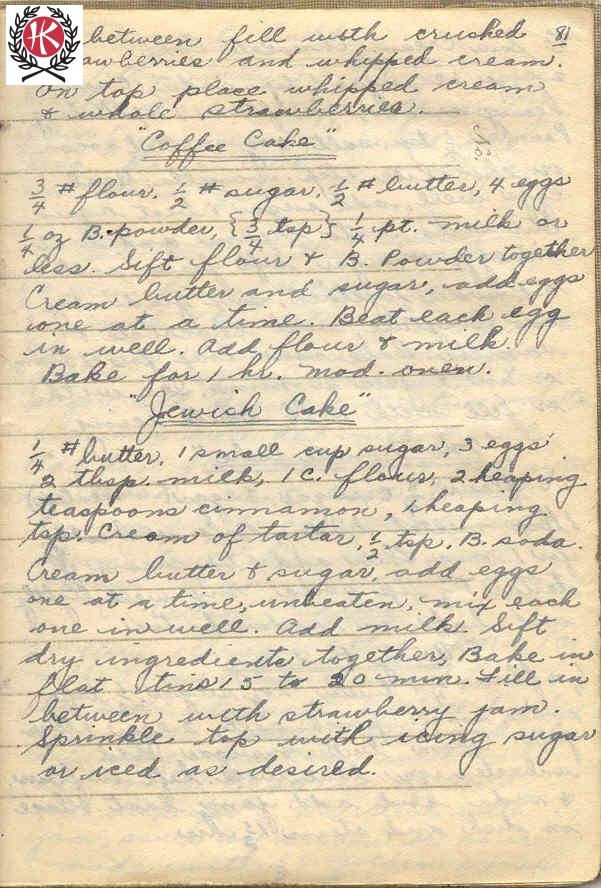 HK
81
between fill with crushed
strawberries and whipped cream.
On top place whipped cream
& whole strawberries.
"Coffee Cake"
No.
3/4 # flour, 1/2 # sugar, 1/2 # butter, 4 eggs
1/4 oz B. powder, {3/4 tsp} 1/4 pt. milk or
less. Sift flour & B. Powder together
Cream butter and sugar, add eggs
one at a time. Beat each egg
in well. Add flour & milk.
Bake for 1 hr. mod. oven.
"Jewish Cake"
1/4 # butter, 1 small cup sugar, 3 eggs
2 tbsp. milk, 1 C. flour, 2 heaping
teaspoons cinnamon, 1 heaping
tsp. Cream of tartar, 1/2 tsp. B. soda.
Cream butter & sugar, add eggs
one at a time, unbeaten, mix each
one in well. Add milk. Sift
dry ingredients together, Bake in
flat tins 15 to 20 min. Fill in
between with strawberry jam.
Sprinkle top with icing sugar
or iced as desired.